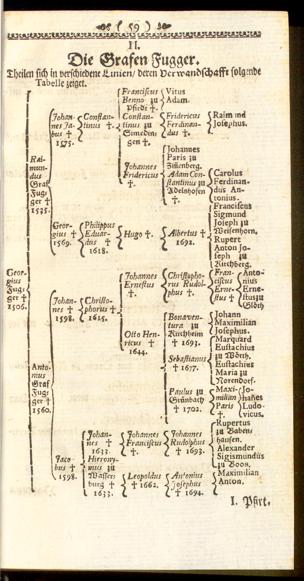 ( 59 )
II.
Die Grafen Fugger.
Theilen sich in verschiedene Linien/ deren Verwandschafft folgende
Tabelle zeiget.
Georgius Fugger † 1506.
Raimundus Graf Fugger † 1535.
Johannes Jabus † 1575.
Constantinus †.
Franciscus Benno zu Pfirdt †.
Vitus
Adam.
Constantinus zu
gen †
Fridericus Ferdinandus †.
Raimund
Josephus.
Johannes Fridericus †.
Johannes
Paris zu
Adam Constantinus zu
Carolus
Ferdinandus Antonius.
Georgius † 1569.
Philippus Eduardus † 1618.
Hugo †.
Albertus † 1692.
Franciscus
Sigmund
Joseph zu
Weisenhorn,
Rupert
Anton Joseph zu
Kirchberg.
Antonius Graf Fugger † 1560.
Johannes † 1598.
Christophorus † 1615.
Johannes Ernestus †.
Christophorus Rudolphus †.
Franciscus Ernestus †
Antonius Ernestus zu
Glött
Otto Henricus † 1644.
Bonaventura zu Kirchheim † 1693.
Johann
Maximilian
Josephus.
Sebastianus † 1677.
Marquard
Eustachius
zu Wörth,
Eustachius
Maria zu
Norendorf.
Paulus zu
† 1702.
Maximilian
Paris †.
Johannes
Ludovicus.
Jacobus † 1598.
Johannes † 1633.
Johannes Franciscus †.
Johannes Rudolphus † 1693.
Rupertus
zu Babenhausen.
Alexander
Sigismundus
zu Boos.
Hieronymus zu Wasserburg † 1633.
Leopoldus † 1662.
Antonius Josephus † 1694.
Maximilian
Anton.
I. Pfirt.